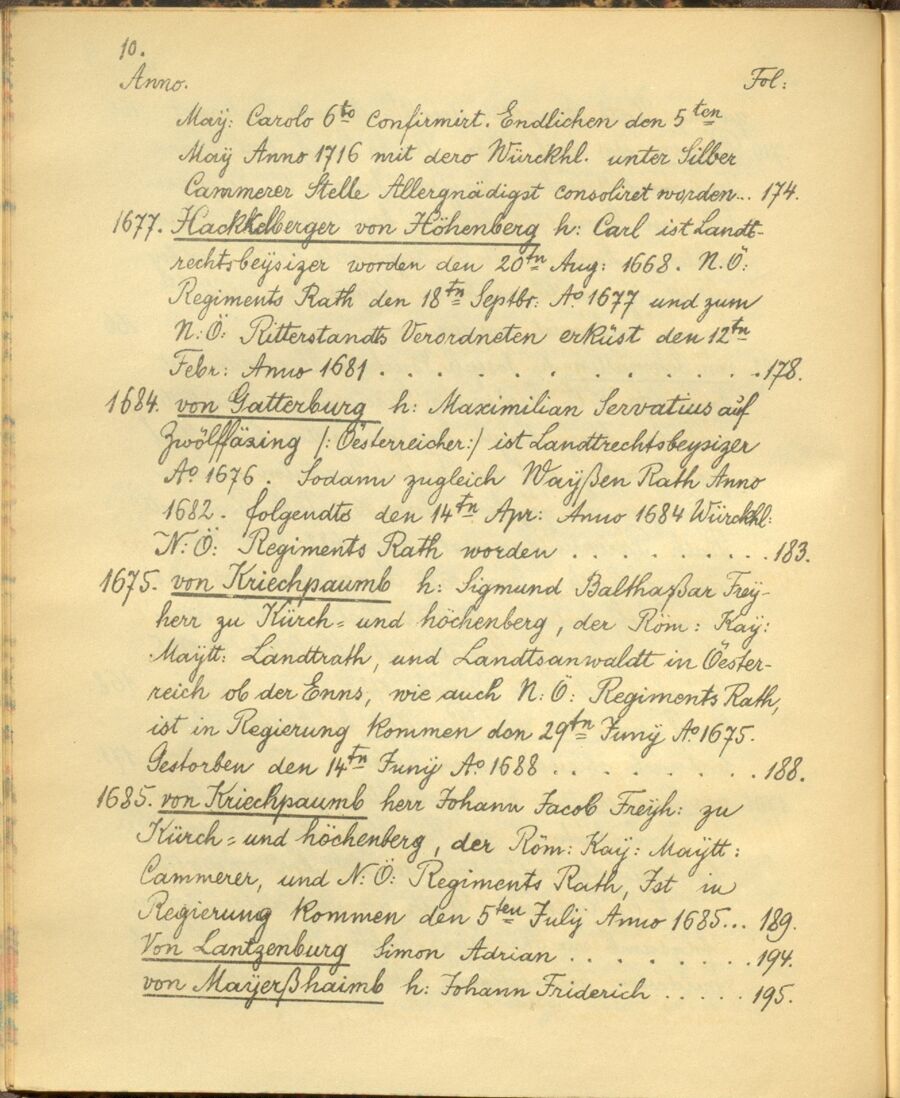 10.
Anno. Fol:
Maÿ: Carolo 6to Confirmirt. Endlichen den 5ten
Maÿ Anno 1716 mit dero Würckhl. unter Silber
Cammerer Stelle Allergnädigst consoliret worden... 174.
1677. Hackhelberger von Höhenberg h: Carl ist Landt-
rechtsbeÿsizer worden den 20tn Aug: 1668. N.Ö:
Regiments Rath den 18tn Septbr: Ao 1677 und zum
N:Ö: Ritterstandts Verordneten erküst den 12tn
Febr: Anno 1681 . . . . . . . . . . . . . 178.
1684. von Gatterburg h: Maximilian Servatius auf
Zwölffäxing /: Öesterreicher:/ ist Landtrechtsbeysizer
Ao 1676. Sodann zugleich Waÿßen Rath Anno
1682. folgendts den 14tn Apr: Anno 1684 Würckhl:
N:Ö: Regiments Rath worden . . . . . . . . . 183.
1675. von Kriechpaumb h: Sigmund Balthaßar Freÿ-
herr zu Kürch= und höchenberg, der Röm: Kaÿ:
Maÿtt: Landtrath, und Landtsanwaldt in Öester-
reich ob der Enns, wie auch N:Ö: Regiments Rath,
ist in Regierung kommen den 29tn Junÿ Ao 1675.
Gestorben den 14tn Junÿ Ao 1688 . . . . . . . . 188.
1685. von Kriechpaumb herr Johann Jacob Freÿh: zu
Kürch= und höchenberg, der Röm: Kaÿ: Maÿtt:
Cammerer, und N:Ö: Regiments Rath, Ist in
Regierung kommen den 5ten Julÿ Anno 1685... 189.
Von Lantzenburg Simon Adrian . . . . . . . . 194.
von Maÿerßhaimb h: Johann Friderich . . . . . 195.